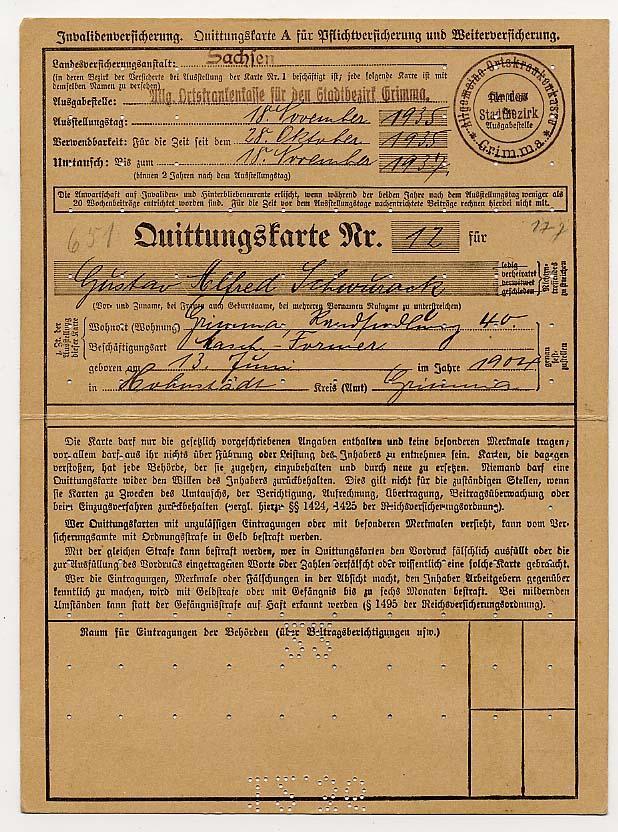 Invalidenversicherung. Quittungskarte A für Pflichtversicherung und Weiterversicherung.
Landesversicherungsanstalt: Sachsen
(in deren Bezirk der Versicherte bei Ausstellung der Karte Nr. 1 beschäftigt ist; jede folgende Karte ist mit
demselben Namen zu versehen)
Ausgabestelle: Allg. Ortskrankenkasse für den Stadtbezirk Grimma.
Ausstellungstag: 18. November 1935
Verwendbarkeit: Für die Zeit seit dem 28. Oktober 1935
Umtausch: Bis zum 18. November 1937.
(binnen 2 Jahren nach dem Ausstellungstag)
Allgemeine Ortskrankenkasse
für den
Stadtbezirk
Ausgabestelle
Grimma.
Die Anwartschaft auf Invaliden- und Hinterbliebenenrente erlischt, wenn während der beiden Jahre nach dem Ausstellungstag weniger als
20 Wochenbeiträge entrichtet worden sind. Für die Zeit vor dem Ausstellungstage nachentrichtete Beiträge rechnen hierbei nicht mit.
651 Quittungskarte Nr. 12 für
Gustav Alfred
ledig
verheiratet
verwitwet
geschieden
Nichtzutreffendes
zu streichen
(Vor- und Zuname, bei Frauen auch Geburtsname, bei mehreren Vornamen Rufname zu unterstreichen)
Wohnort (Wohnung) Grimma 40.
Beschäftigungsart Masch-Former
geboren am 13. Juni im Jahre 1904
in Hohnstädt Kreis (Amt) Grimma
z. Zt. der
Ausstellung
dieser Karte
genau
fest-
zustellen
Die Karte darf nur die gesetzlich vorgeschriebenen Angaben enthalten und keine besonderen Merkmale tragen;
vor allem darf aus ihr nichts über Führung oder Leistung des Inhabers zu entnehmen sein. Karten, die dagegen
verstoßen, hat jede Behörde, der sie zugehen, einzubehalten und durch neue zu ersetzen. Niemand darf eine
Quittungskarte wider den Willen des Inhabers zurückbehalten. Dies gilt nicht für die zuständigen Stellen, wenn
sie Karten zu Zwecken des Umtauschs, der Berichtigung, Aufrechnung, Übertragung, Beitragsüberwachung oder
beim Einzugsverfahren zurückbehalten (vergl. hierzu §§ 1424, 1425 der Reichsversicherungsordnung).
Wer Quittungskarten mit unzulässigen Eintragungen oder mit besonderen Merkmalen versieht, kann vom Ver-
sicherungsamte mit Ordnungsstrafe in Geld bestraft werden.
Mit der gleichen Strafe kann bestraft werden, wer in Quittungskarten den Vordruck fälschlich ausfüllt oder die
zur Ausfüllung des Vordrucks eingetragenen Worte oder Zahlen verfälscht oder wissentlich eine solche Karte gebraucht.
Wer die Eintragungen, Merkmale oder Fälschungen in der Absicht macht, den Inhaber Arbeitgebern gegenüber
kenntlich zu machen, wird mit Geldstrafe oder mit Gefängnis bis zu sechs Monaten bestraft. Bei mildernden
Umständen kann statt der Gefängnisstrafe auf Haft erkannt werden (§ 1495 der Reichsversicherungsordnung).
Raum für Eintragungen der Behörden (über Beitragsberichtigungen usw.)